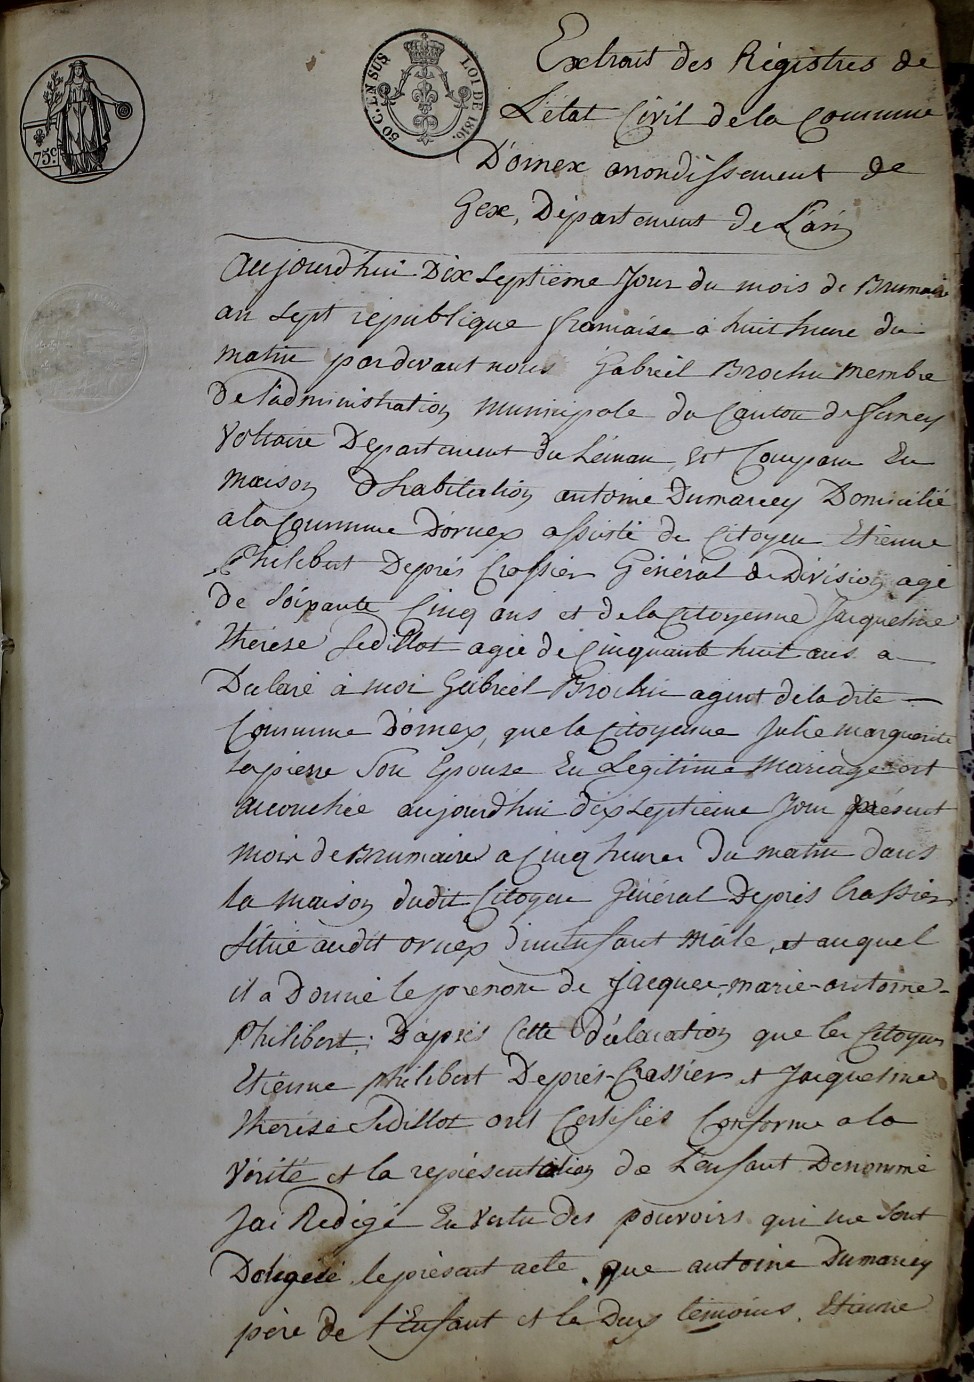 75c
50 C. EN SUS
LOI DE 1816.
Extrait des Régistres de
L'état Civil de la Commune
D'ornex arrondissement de
Gex, Département de L'ain
Aujourd'hui Dix Septieme Jour du mois de Brumaire
an Sept republique francaise a huit heure du
matin pardevant nous Gabriel Brochu membre
De l'administration Municipale du Canton de ferney
Voltaire Département du Léman, Est Comparu En
maison D'habitation antoine Dumarcey Domicilié
a la Commune D'ornex assisté de Citoyen Etienne
Philibert Deprés Crassier Général de Division agé
de Soixante Cinq ans et de la Citoyenne Jacqueline
thérèse Sedillot agée de Cinquante huit ans a
Declaré à moi Gabriel Brochu agent de la dite
Commune D'ornex, que la Citoyenne Julie marguerite
lapierre Son Epouse En Légitime Mariage est
accouchée aujourd'hui dix Septieme Jour présent
mois de Brumaire a Cinq heures Du matin dans
la Maison dudit Citoyen Général Deprés Crassier
Située audit ornex d'un Enfant Mâle, et auquel
il a Donné le prenom de Jacques-marie-antoine-
Philibert: D'après Cette Déclaration que les Citoyens
Etienne philibert Deprés-Crassier et Jacqueline
thérèse Sedillot ont Certifiés Conforme a la
Vérité et la représentation de L'enfant Denommé
J'ai Redigé En Vertu des pouvoirs qui me Sont
Délégué le présent acte que antoine Dumarcey
père de l'Enfant et le Deux témoins, Etienne